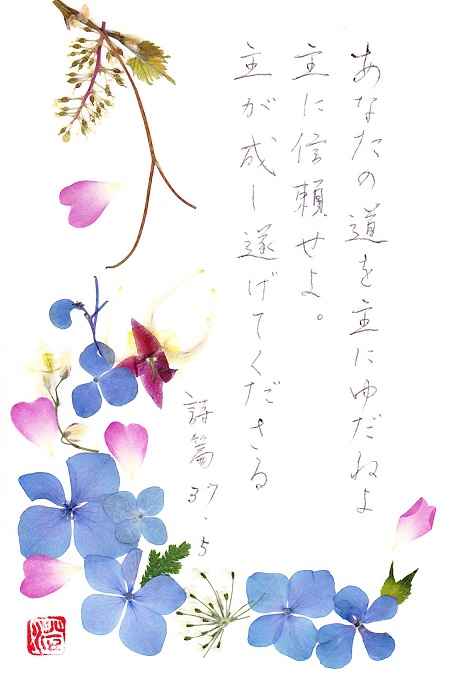 あなたの道を主にゆだねよ
主に信頼せよ。
主が成し遂げてくださる
詩篇37.5